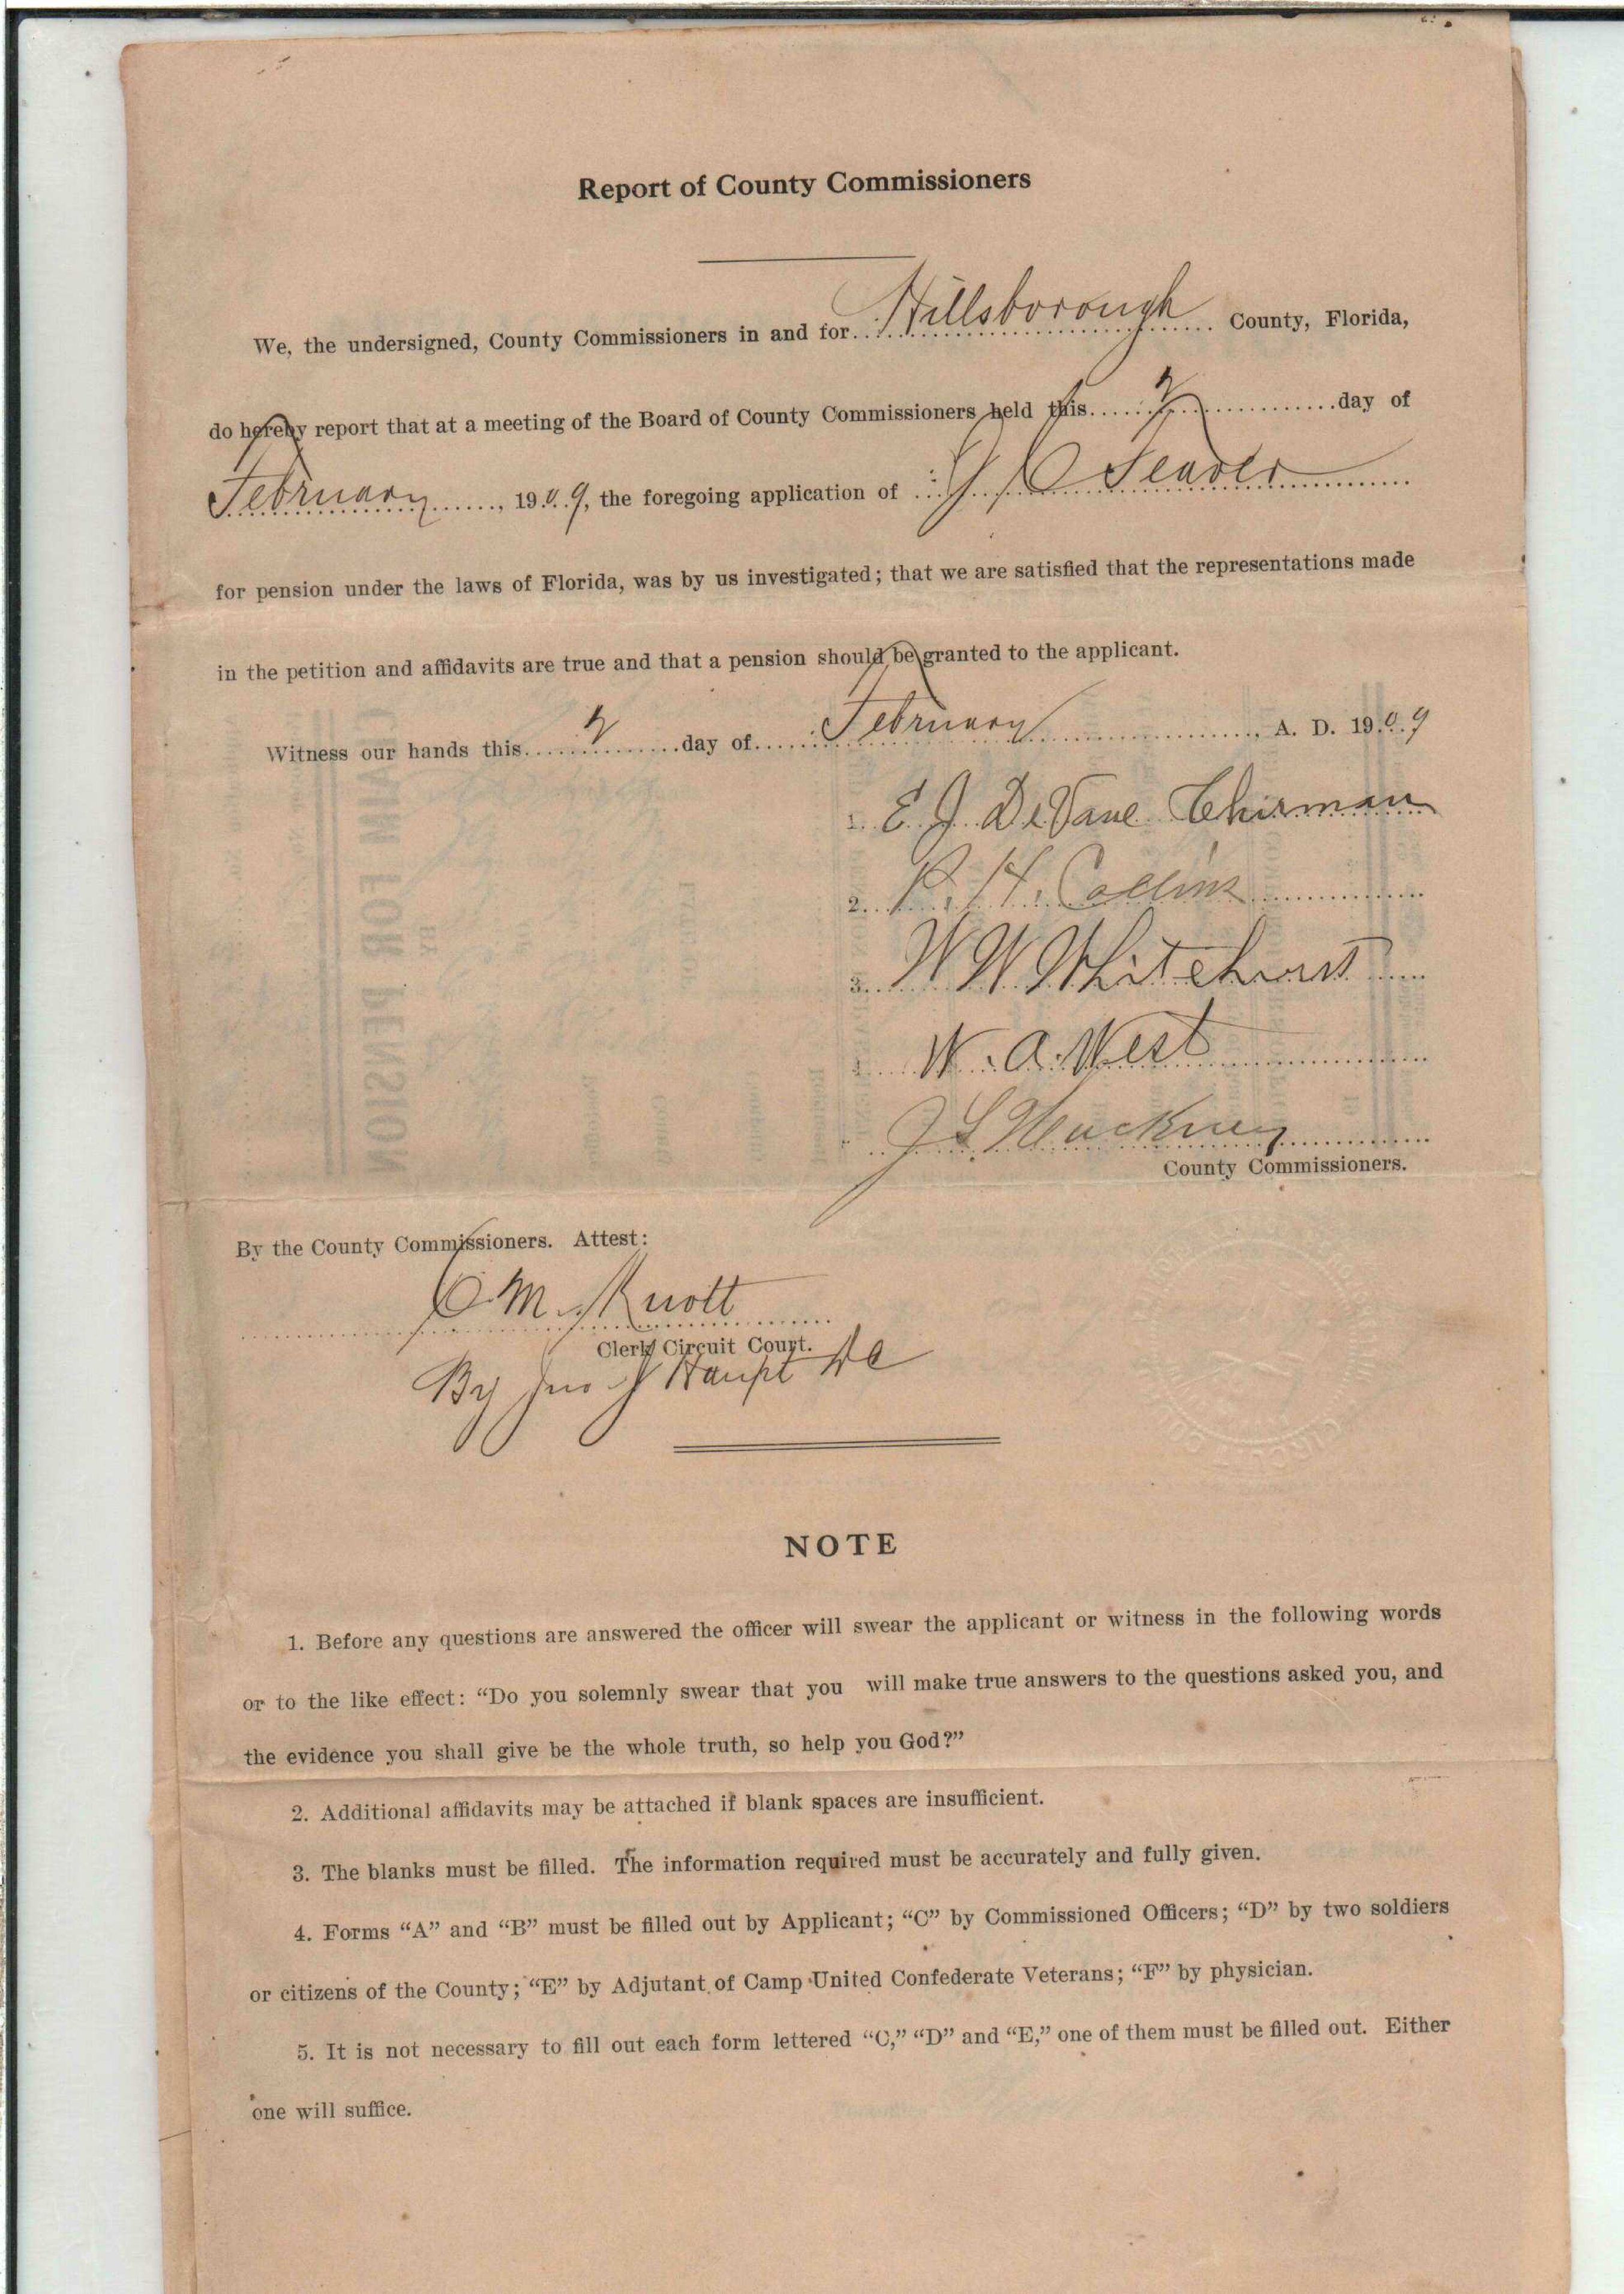 Report of County Commissioners
We, the undersigned, County Commissioners in and for Hillsborough County, Florida,
do hereby report that at a meeting of the Board of County Commissioners held this 2 day of
February, 1909, the foregoing application of J C Seaver
for pension under the laws of Florida, was by us investigated; that we are satisfied that the representations made
in the petition and affidavits are true and that a pension should be granted to the applicant.
Witness our hands this 2 day of February, A. D. 1909
1. E J DeVane Chirman
2. R. H. Collins
3. W W Whitehurst
W. A. West
J L Hackney
County Commissioners.
By the County Commissioners. Attest:
C. M. Knott
Clerk Circuit Court.
By Jno J Haupt DC
NOTE
1. Before any questions are answered the officer will swear the applicant or witness in the following words
or to the like effect: “Do you solemnly swear that you will make true answers to the questions asked you, and
the evidence you shall give be the whole truth, so help you God?”
2. Additional affidavits may be attached if blank spaces are insufficient.
3. The blanks must be filled. The information required must be accurately and fully given.
4. Forms “A” and “B” must be filled out by Applicant; “C” by Commissioned Officers; “D” by two soldiers
or citizens of the County; “E” by Adjutant of Camp United Confederate Veterans; “F” by physician.
5. It is not necessary to fill out each form lettered “C,” “D” and “E,” one of them must be filled out. Either
one will suffice.